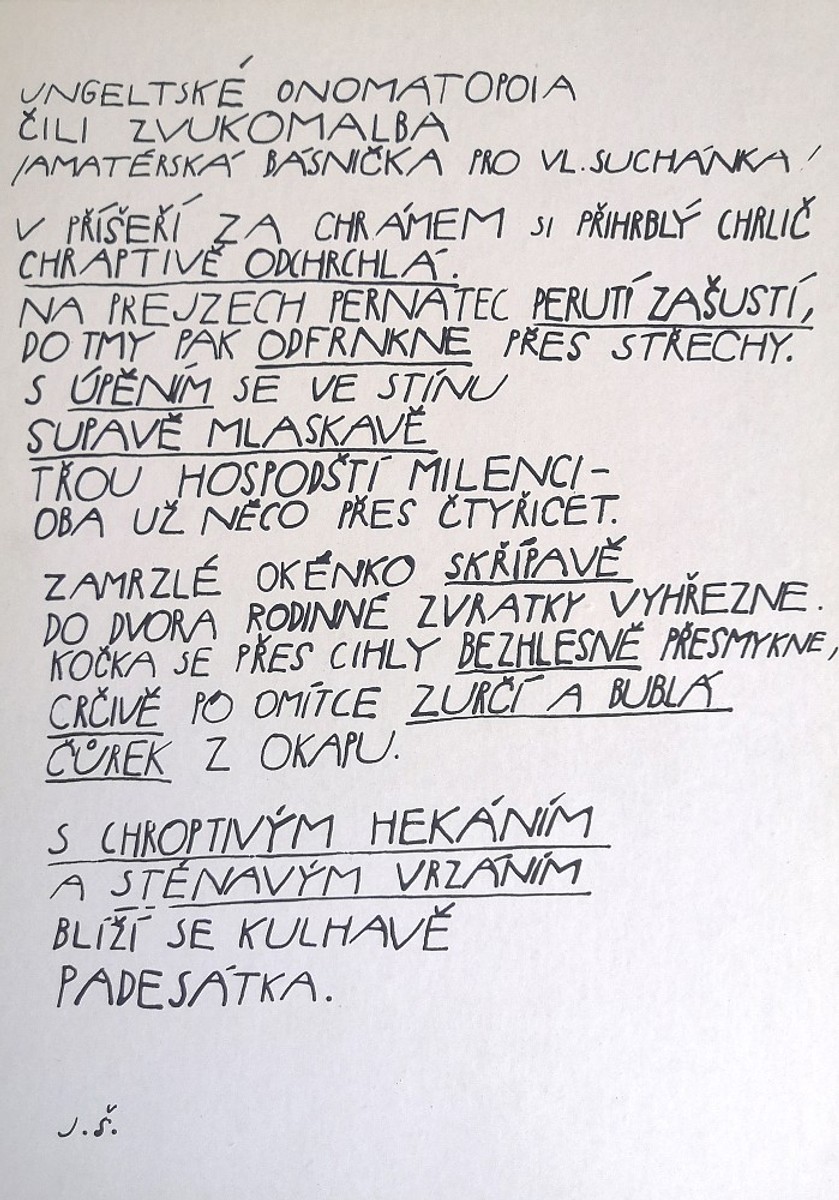 UNGELTSKÉ ONOMATOPOIA
ČILI ZVUKOMALBA
/AMATÉRSKÁ BÁSNIČKA PRO VL. SUCHÁNKA/
V PŘÍŠEŘÍ ZA CHRÁMEM SI PŘIHRBLÝ CHRLIČ
CHRAPTIVĚ ODCHRCHLÁ.
NA PREJZECH PERNATEC PERUTÍ ZAŠUSTÍ,
DO TMY PAK ODFRNKNE PŘES STŘECHY.
S ÚPĚNÍM SE VE STÍNU
SUPAVĚ MLASKAVĚ
TŘOU HOSPODŠTÍ MILENCI-
OBA UŽ NĚCO PŘES ČTYŘICET.
ZAMRZLÉ OKÉNKO SKŘÍPAVĚ
DO DVORA RODINNÉ ZVRATKY VYHŘEZNE.
KOČKA SE PŘES CIHLY BEZHLESNĚ PŘESMYKNE,
CRČIVĚ PO OMÍTCE ZURČÍ A BUBLÁ
ČŮREK Z OKAPU.
S CHROPTIVÝM HEKÁNÍM
A STÉNAVÝM VRZÁNÍM
BLÍŽÍ SE KULHAVĚ
PADESÁTKA.
J.Š.